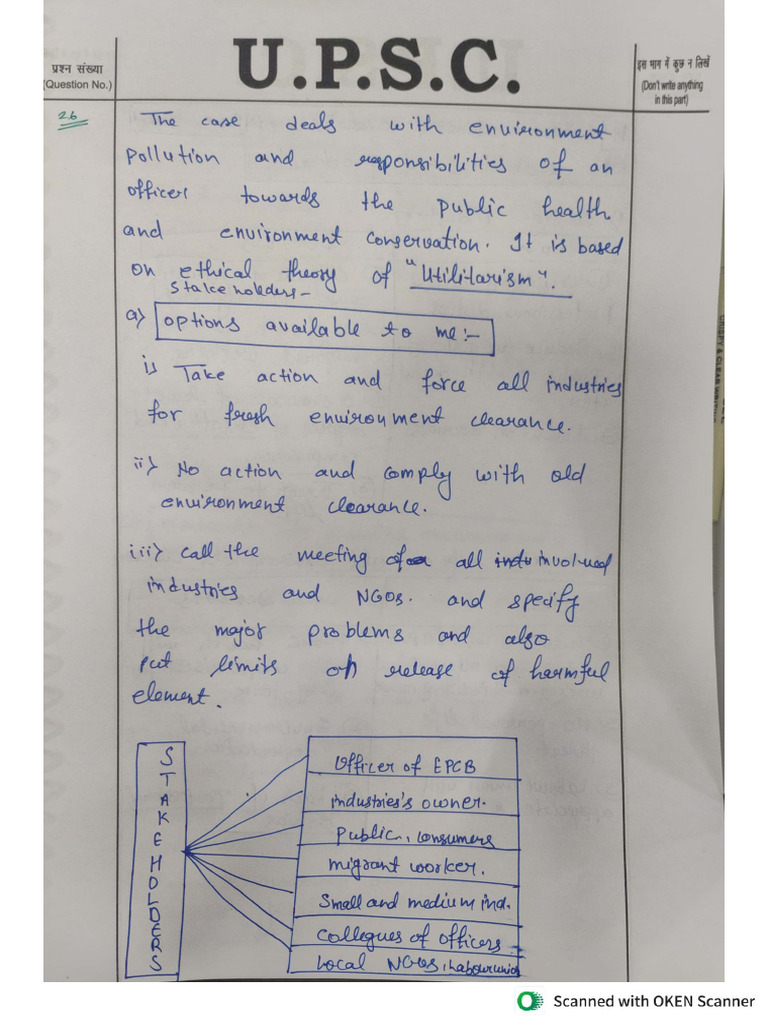 U.P.S.C.
प्रश्न संख्या
(Question No.)
इस भाग में कुछ न लिखें
(Don't write anything
in this part)
26
The case deals with environment
pollution and responsibilities of an
officer towards the public health
and environment conservation. It is based
on ethical theory of "Utilitarism".
Stake holders-
a) options available to me:-
i) Take action and force all industries
for fresh environment clearance.
ii) No action and comply with old
environment clearance.
iii) call the meeting of all involved
industries and NGOs. and specify
the major problems and also
put limits on release of harmful
element.
STAKEHOLDERS
Officer of EPCB
industries's owner.
Public, consumers
migrant worker.
Small and medium ind.
Collegues of officers
Local NGOs, Labourunion
Scanned with OKEN Scanner